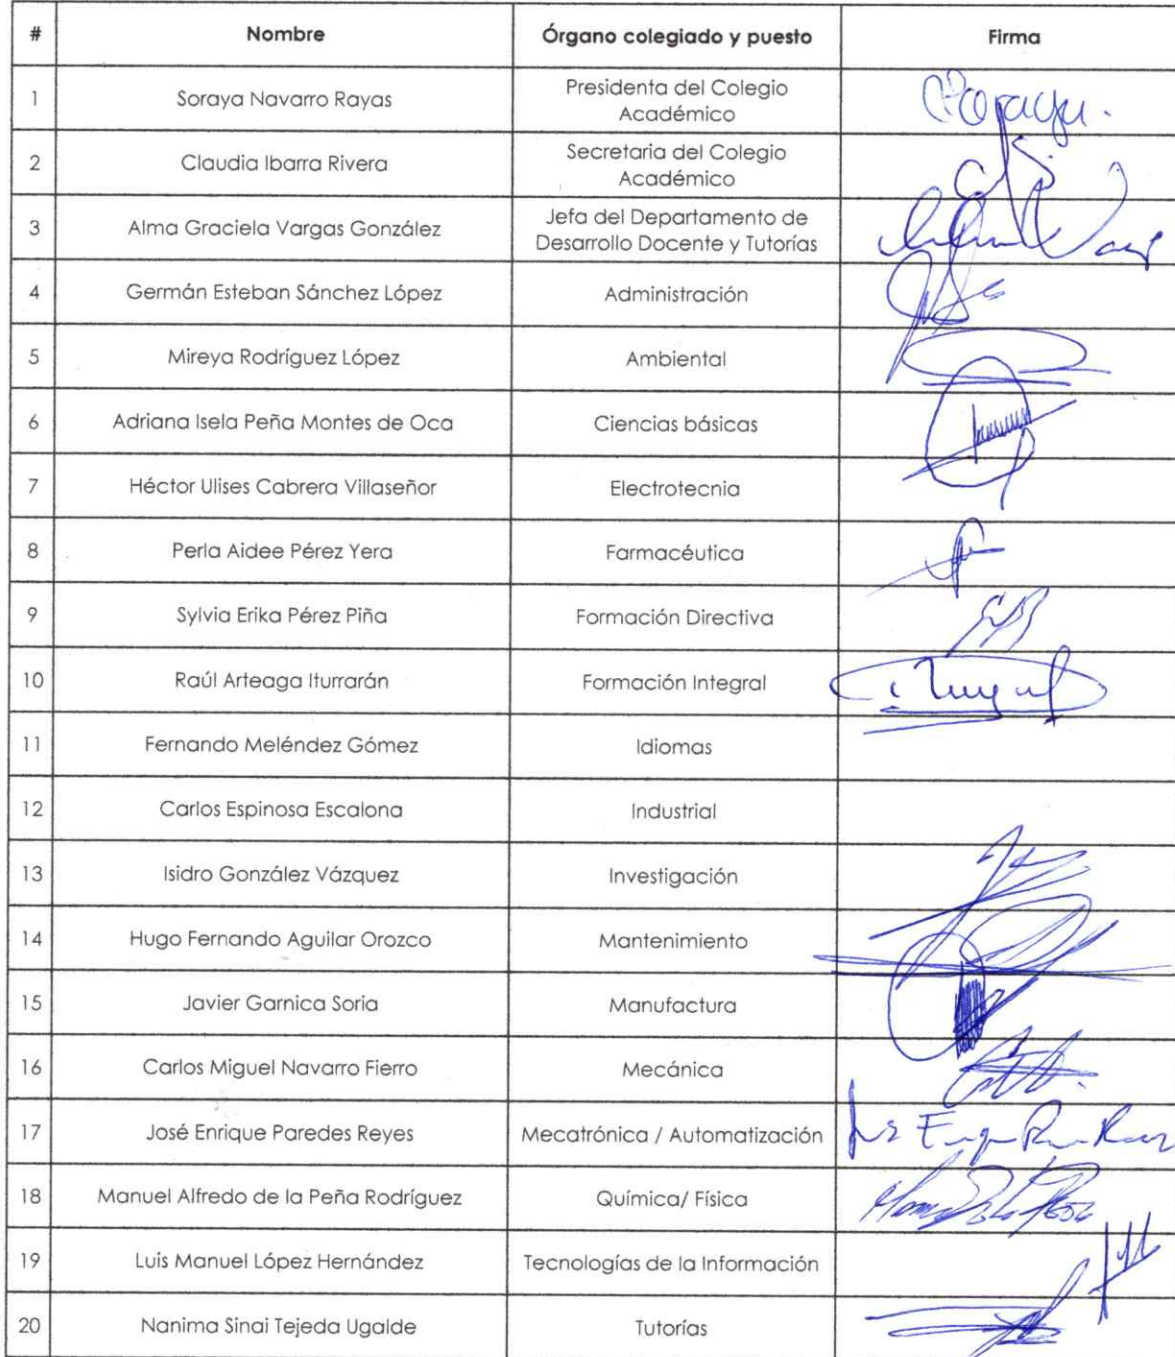 # Nombre Órgano colegiado y puesto Firma
1 Soraya Navarro Rayas Presidenta del Colegio
Académico
2 Claudia Ibarra Rivera Secretaria del Colegio
Académico
3 Alma Graciela Vargas González Jefa del Departamento de
Desarrollo Docente y Tutorías
4 Germán Esteban Sánchez López Administración
5 Mireya Rodríguez López Ambiental
6 Adriana Isela Peña Montes de Oca Ciencias básicas
7 Héctor Ulises Cabrera Villaseñor Electrotecnia
8 Perla Aidee Pérez Yera Farmacéutica
9 Sylvia Erika Pérez Piña Formación Directiva
10 Raúl Arteaga Iturrarán Formación Integral
11 Fernando Meléndez Gómez Idiomas
12 Carlos Espinosa Escalona Industrial
13 Isidro González Vázquez Investigación
14 Hugo Fernando Aguilar Orozco Mantenimiento
15 Javier Garnica Soria Manufactura
16 Carlos Miguel Navarro Fierro Mecánica
17 José Enrique Paredes Reyes Mecatrónica / Automatización
18 Manuel Alfredo de la Peña Rodríguez Química/ Física
19 Luis Manuel López Hernández Tecnologías de la Información
20 Nanima Sinai Tejeda Ugalde Tutorías